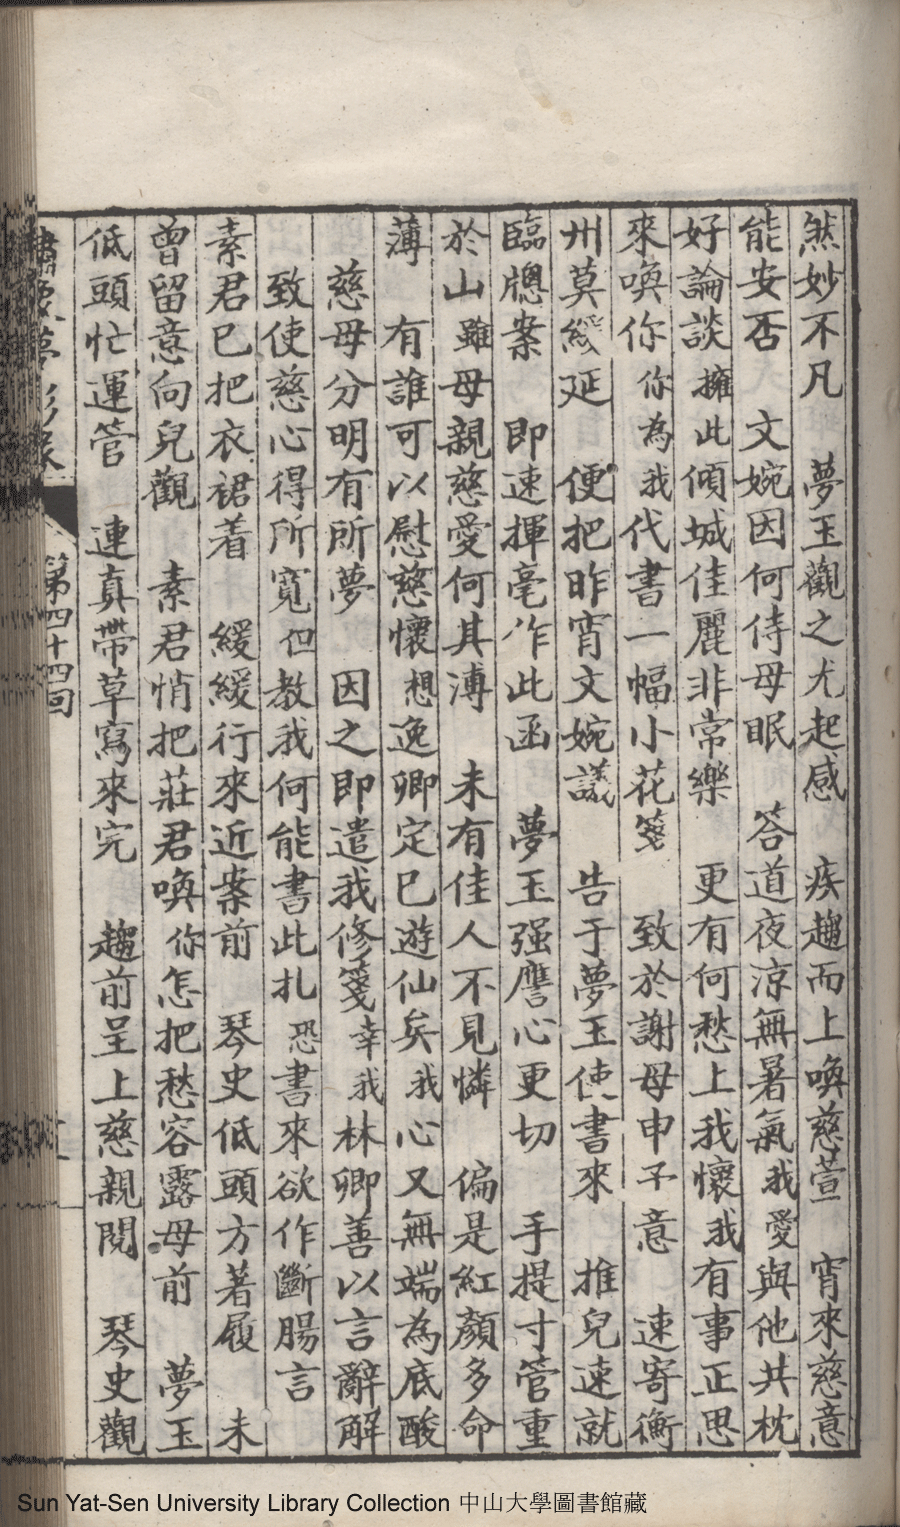 然妙不凡　夢玉觀之尤起感　疾趨而上喚慈萱　宵來慈意
能安否　文婉因何侍母眠　答道夜凉無暑氣我愛與他共枕
好論談擁此傾城佳麗非常樂　更有何愁上我懷我有事正思
來喚你你為我代書一幅小花箋　致於謝母申予意　速寄衡
州莫緩延　便把昨宵文婉議　告于夢玉使書來　推兒速就
臨牕案　即速揮毫作此函　夢玉强譍心更切　手提寸管重
於山雖母親慈愛何其溥　未有佳人不見憐　偏是紅顏多命
薄　有誰可以慰慈懷想逸卿定已遊仙矣我心又無端為底酸
慈母分明有所夢　因之即遣我修箋幸我林卿善以言辭解
致使慈心得所寬但教我何能書此扎恐書來欲作斷腸言
素君已把衣裙着　緩緩行來近案前　琴史低頭方著屐　未
曾留意向兒觀　素君悄把莊君喚你怎把愁容露母前　夢玉
低頭忙運管　連真帶草寫來完　趨前呈上慈親閱　琴史觀
第四十四回
Sun Yat-Sen University Library Collection 中山大學圖書館藏